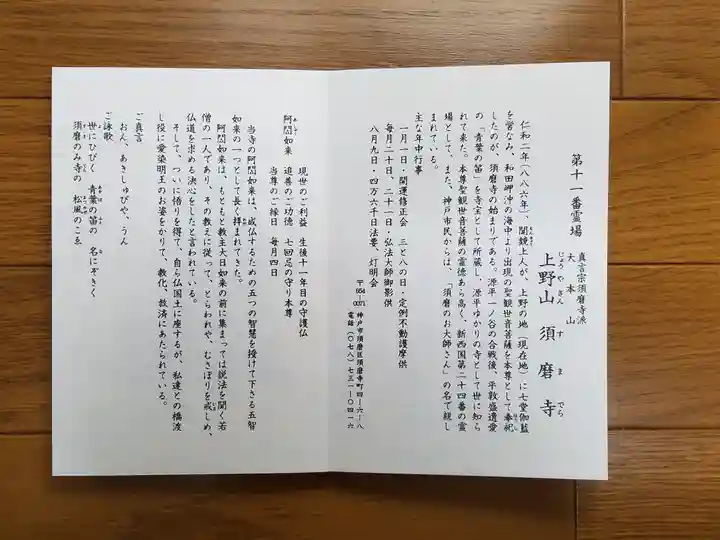 第十一番霊場
真言宗須磨寺派
大本山
上野山 須磨寺
じょうやさん すまでら
仁和二年(八八六年)、聞鏡上人が、上野の地(現在地)に七堂伽藍
を営なみ、和田岬沖の海中より出現の聖観世音菩薩を本尊として奉祀
したのが、須磨寺の始まりである。源平一ノ谷の合戦後、平敦盛遺愛
の「青葉の笛」を寺宝として所蔵し、源平ゆかりの寺として世に知ら
れて来た。本尊聖観世音菩薩の霊徳あら高く、新西国第二十四番の霊
場として、また、神戸市民からは、「須磨のお大師さん」の名で親し
まれている。
主な年中行事
一月一日・開運修正会 三と八の日・定例不動護摩供
毎月二十日、二十一日・弘法大師御影供
八月九日・四万六千日法要、灯明会
〒654-0071 神戸市須磨区須磨寺町四-六-八
電話(〇七八)七三一-〇四一六
現世のご利益 生後十一年目の守護仏
阿閦如来 追善のご功徳 七回忌の守り本尊
当尊のご縁日 毎月四日
当寺の阿閦如来は、成仏するための五つの智慧を授けて下さる五智
如来の一つとして長く拝まれてきた。
阿閦如来は、もともと教主大日如来の前に集まっては説法を聞く若
僧の一人であり、その教えに従って、とらわれや、むさぼりを戒しめ、
仏道を求める決心をしたと言われている。
そして、ついに悟りを得て、自ら仏国土に座するが、私達との橋渡
し役に愛染明王のお姿をかりて、教化、救済にあたられている。
ご真言
おん、あきしゅびや、うん
ご詠歌
世にひびく 青葉の笛の 名にぞきく
須磨のみ寺の 松風のこゑ